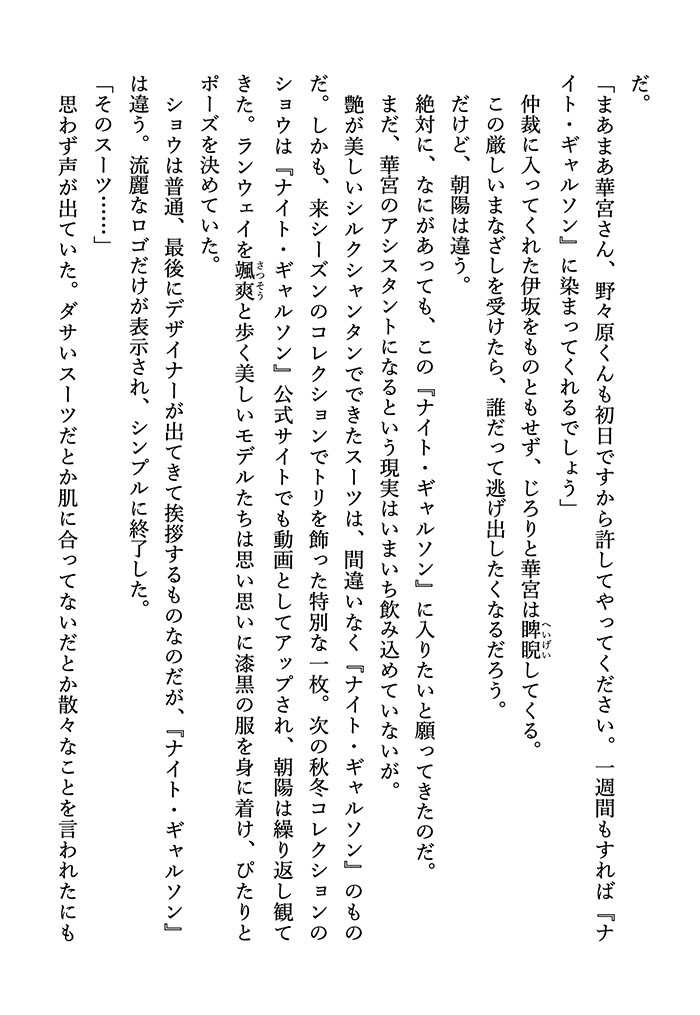 だ。
「まあまあ華宮さん、野々原くんも初日ですから許してやってください。一週間もすれば『ナ
イト・ギャルソン』に染まってくれるでしょう」
仲裁に入ってくれた伊坂をものともせず、じろりと華宮は睥睨へいげいしてくる。
この厳しいまなざしを受けたら、誰だって逃げ出したくなるだろう。
だけど、朝陽は違う。
絶対に、なにがあっても、この『ナイト・ギャルソン』に入りたいと願ってきたのだ。
まだ、華宮のアシスタントになるという現実はいまいち飲み込めていないが。
艶が美しいシルクシャンタンでできたスーツは、間違いなく『ナイト・ギャルソン』のもの
だ。しかも、来シーズンのコレクションでトリを飾った特別な一枚。次の秋冬コレクションの
ショウは『ナイト・ギャルソン』公式サイトでも動画としてアップされ、朝陽は繰り返し観て
きた。ランウェイを颯爽さつそうと歩く美しいモデルたちは思い思いに漆黒の服を身に着け、ぴたりと
ポーズを決めていた。
ショウは普通、最後にデザイナーが出てきて挨拶するものなのだが、『ナイト・ギャルソン』
は違う。流麗なロゴだけが表示され、シンプルに終了した。
「そのスーツ……」
思わず声が出ていた。ダサいスーツだとか肌に合ってないだとか散々なことを言われたにも